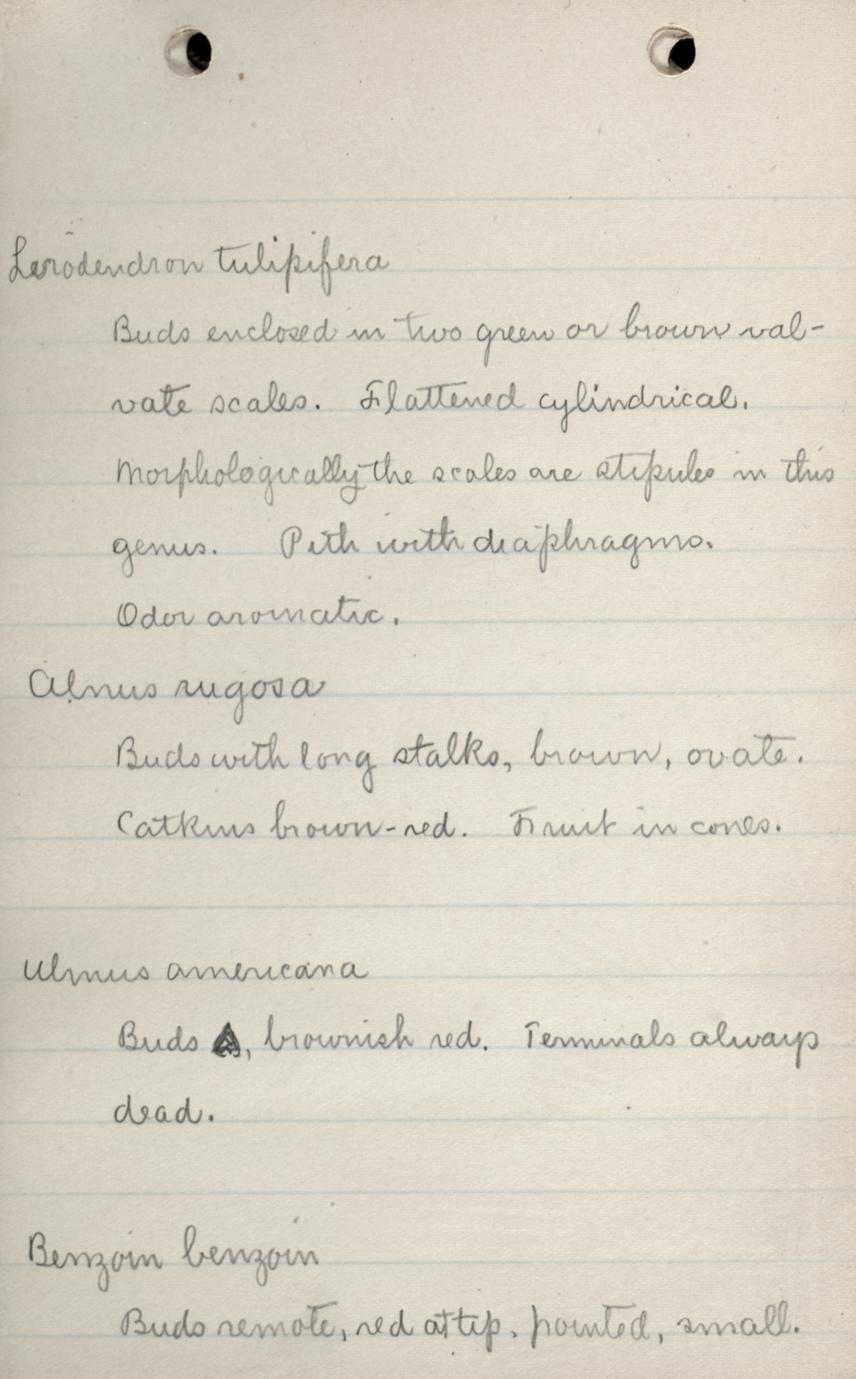 Lerodendron tulipifera
Buds enclosed in two green or brown val-
vate scales. Flattened cylindrical.
Morphologically the scales are stipules in this
genus. Pith with diaphragms.
Odor aromatic.
Alnus rugosa
Buds with long stalks, brown, ovate.
Catkins brown-red. Fruit in cones.
Ulmus americana
Buds , brownish red. Terminals always
dead.
Benzoin benzoin
Buds remote, red at tip. pointed, small.